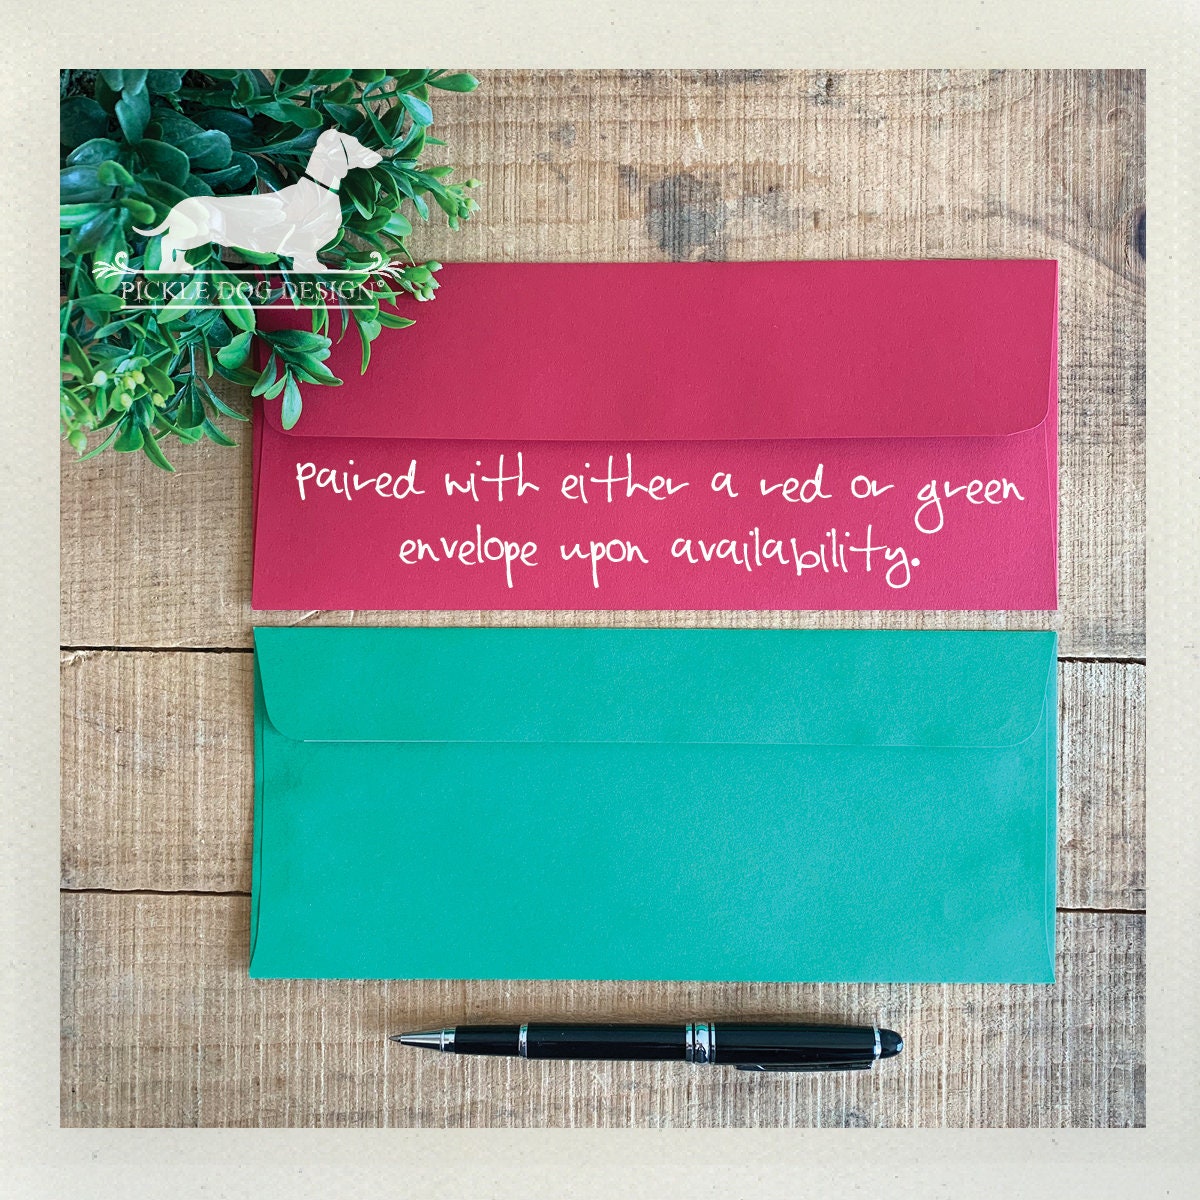 PICKLE DOG DESIGN®
paired with either a red or green
envelope upon availability.